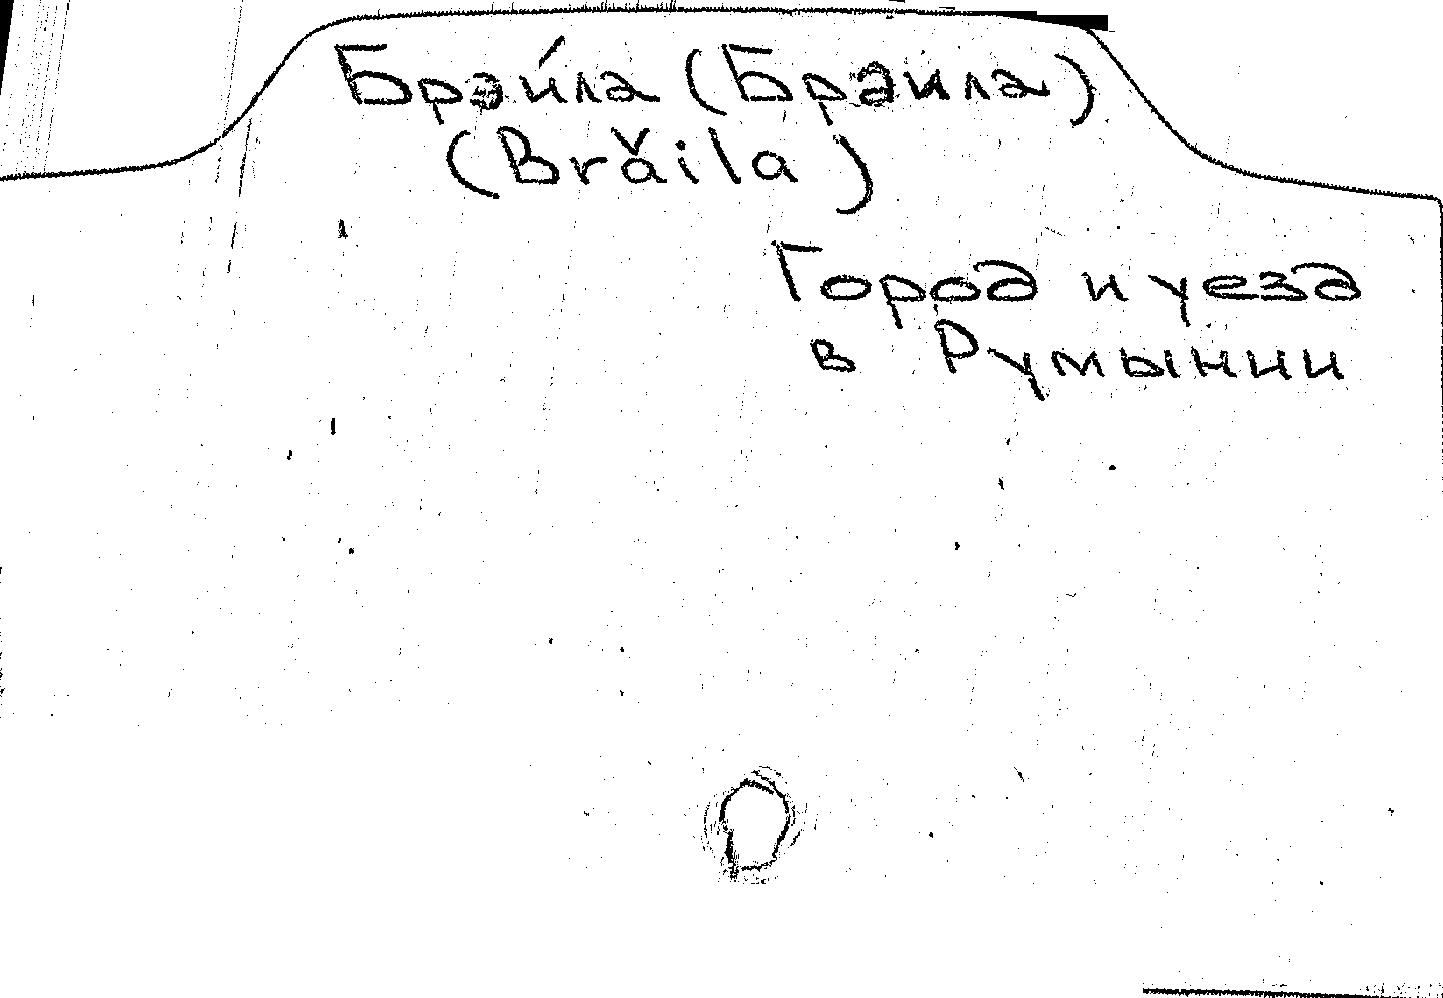 Брэи́ла (Браила)
(Brăila)
Город и уезд
в Румынии